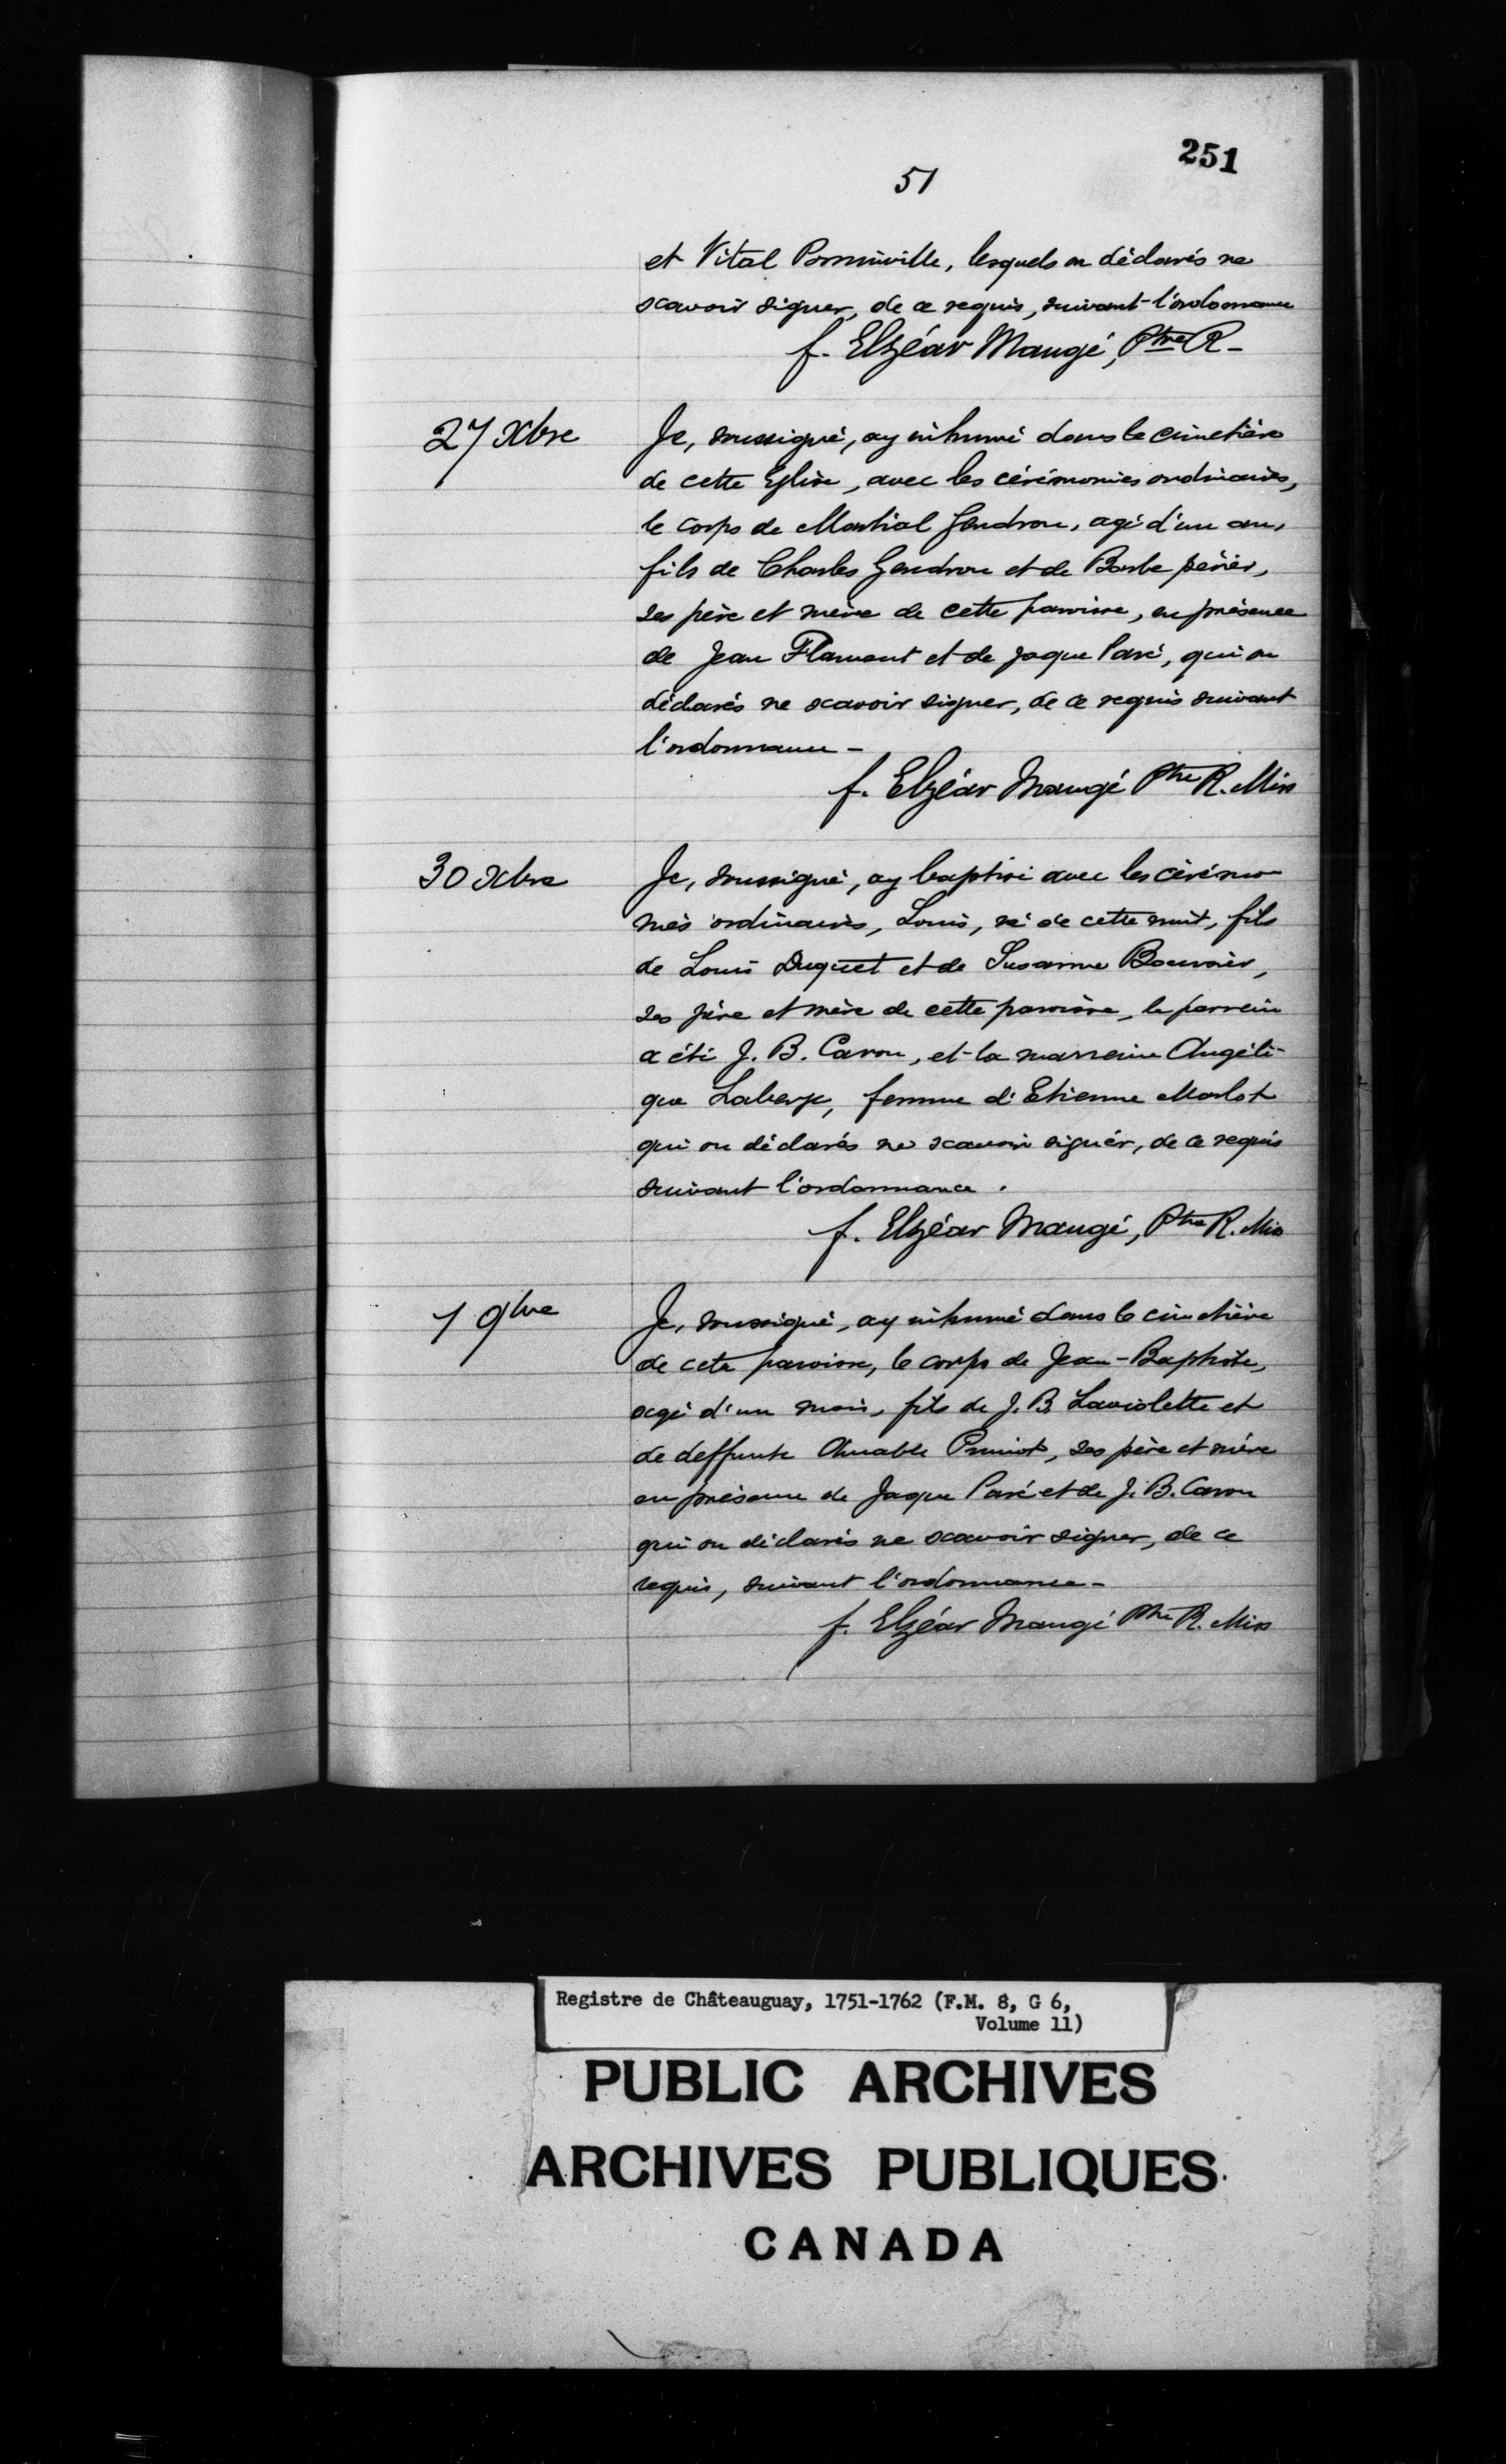 251
51
et Vital Primville, lesquels on déclarés ne
scavoir signer, de ce requis, suivant l'ordonnance
f. Elzéar Maugé, Ptre R-
27 Xbre
Je, soussigné, ay inhumé dans le cimetière
de cette Eglise, avec les cérémonies ordinaires,
le corps de Martial Gendron, agé d'un an,
fils de Charles Gendron et de Barbe périer,
ses père et mère de cette paroisse, en présence
de Jean Flament et de Jaque Paré, qui on
déclarés ne scavoir signer, de ce requis suivant
l'ordonnance -
f. Elzéar Maugé Ptre R. Miss
30 Xbre
Je, soussigné, ay baptisé avec les cérémo
nies ordinaires, Louis, né de cette nuit, fils
de Louis Duquet et de Susanne Bouvrier,
ses père et mère de cette paroisse, le parrein
a été J. B. Caron, et la marreine Angéli-
que Laberge, femme d'Etienne Marlot
qui on déclarés ne scavoir signer, de ce requis
suivant l'ordonnance.
f. Elzéar Maugé, Ptre R. Miss
1 9bre
Je, soussigné, ay inhumé dans le cimetière
de cete paroisse, le corps de Jean-Baptiste,
agé d'un mois, fils de J. B. Laviolette et
de deffunte Amable Primot, ses père et mère
en présence de Jaque Paré et de J. B. Caron
qui on déclarés ne scavoir signer, de ce
requis, suivant l'ordonnance-
f. Elzéar Maugé Ptre R. Miss
Registre de Châteauguay, 1751-1762 (F.M. 8, G 6,
Volume 11)
PUBLIC ARCHIVES
ARCHIVES PUBLIQUES
CANADA